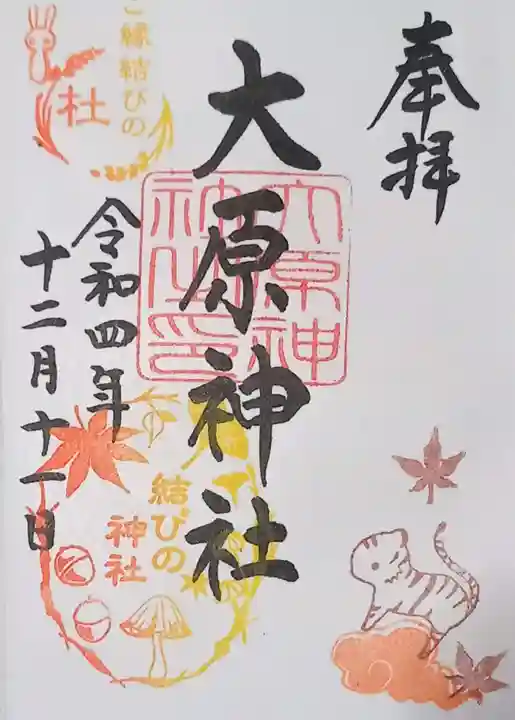 奉拝
大原神社
大原神
社之印
令和四年
十二月十一日
ご縁結びの
杜
結びの
神社